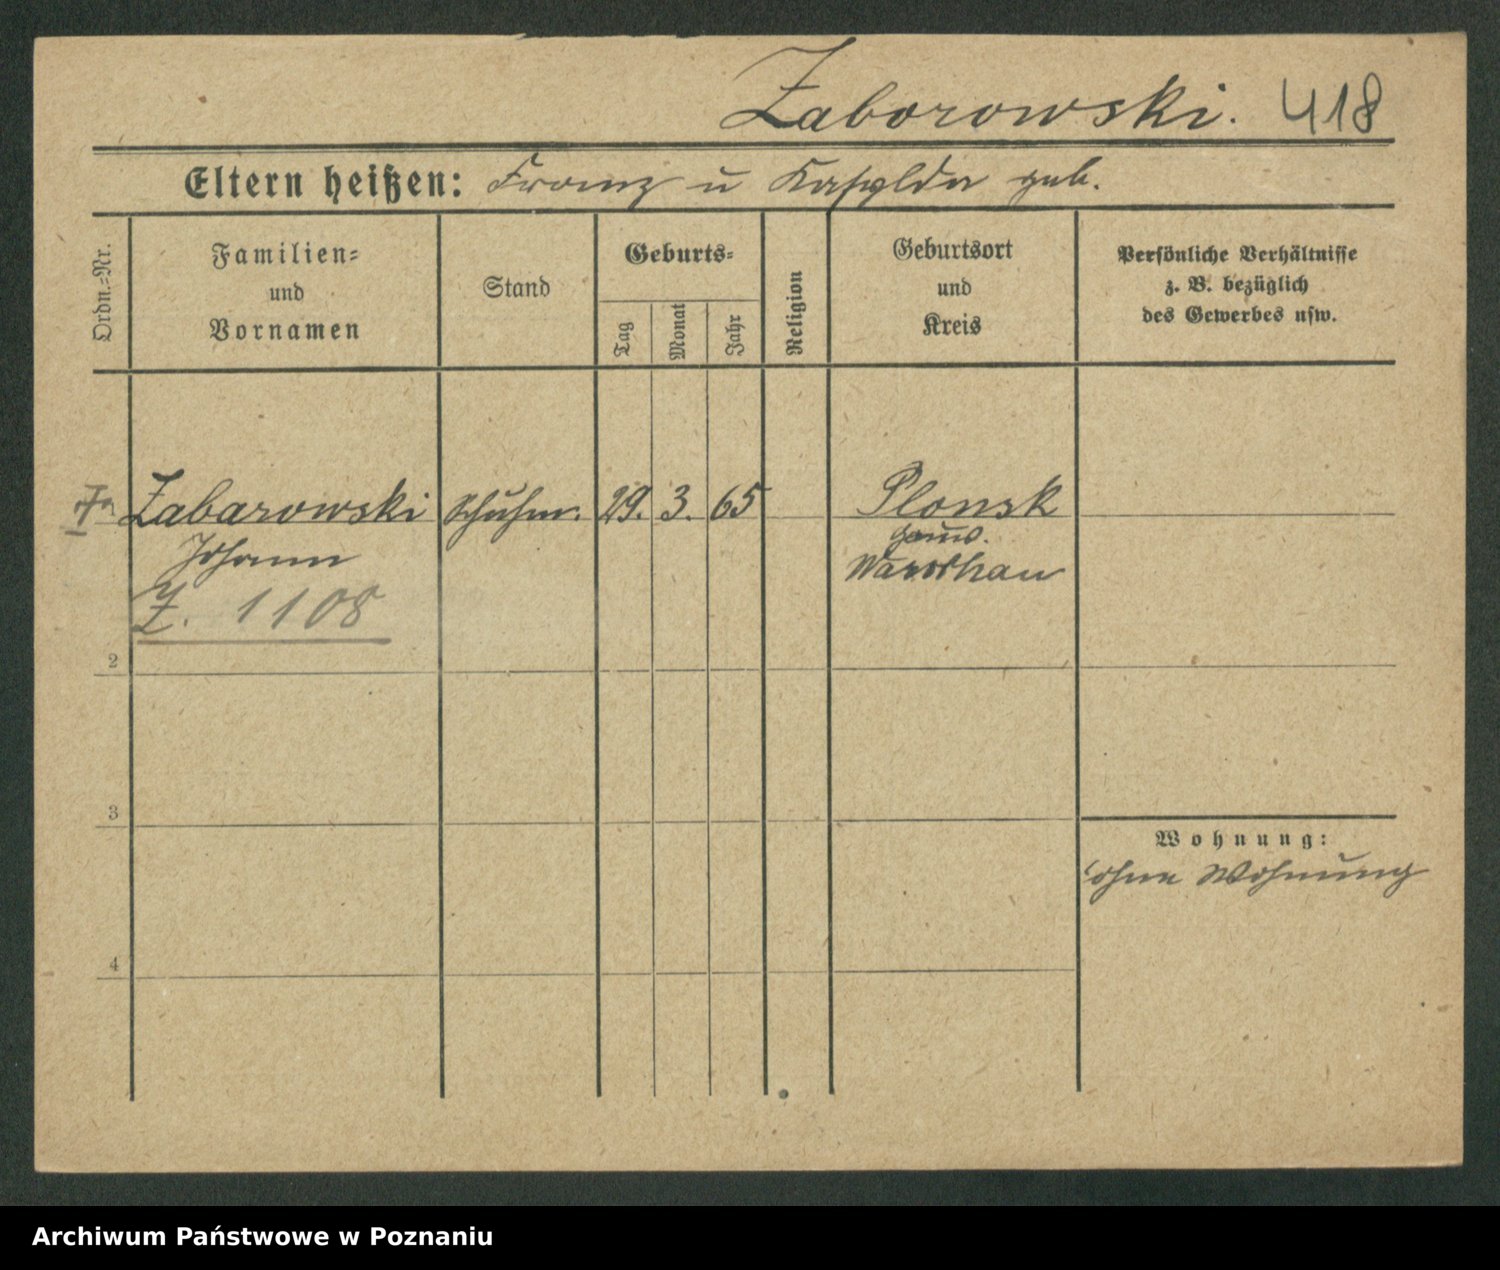 Zaborowski. 418
Eltern heißen: Franz u geb.
Ordn.=Nr.
Familien=
und
Vornamen
Stand
Geburts=
Tag
Monat
Jahr
Religion
Geburtsort
und
Kreis
Persönliche Verhältnisse
z. B. bezüglich
des Gewerbes usw.
Zabarowski Schuhm. 29. 3. 65 Plonsk
Johann
Warschau
Z. 1108
2
3
Wohnung:
ohne Wohnung
4
Archiwum Państwowe w Poznaniu